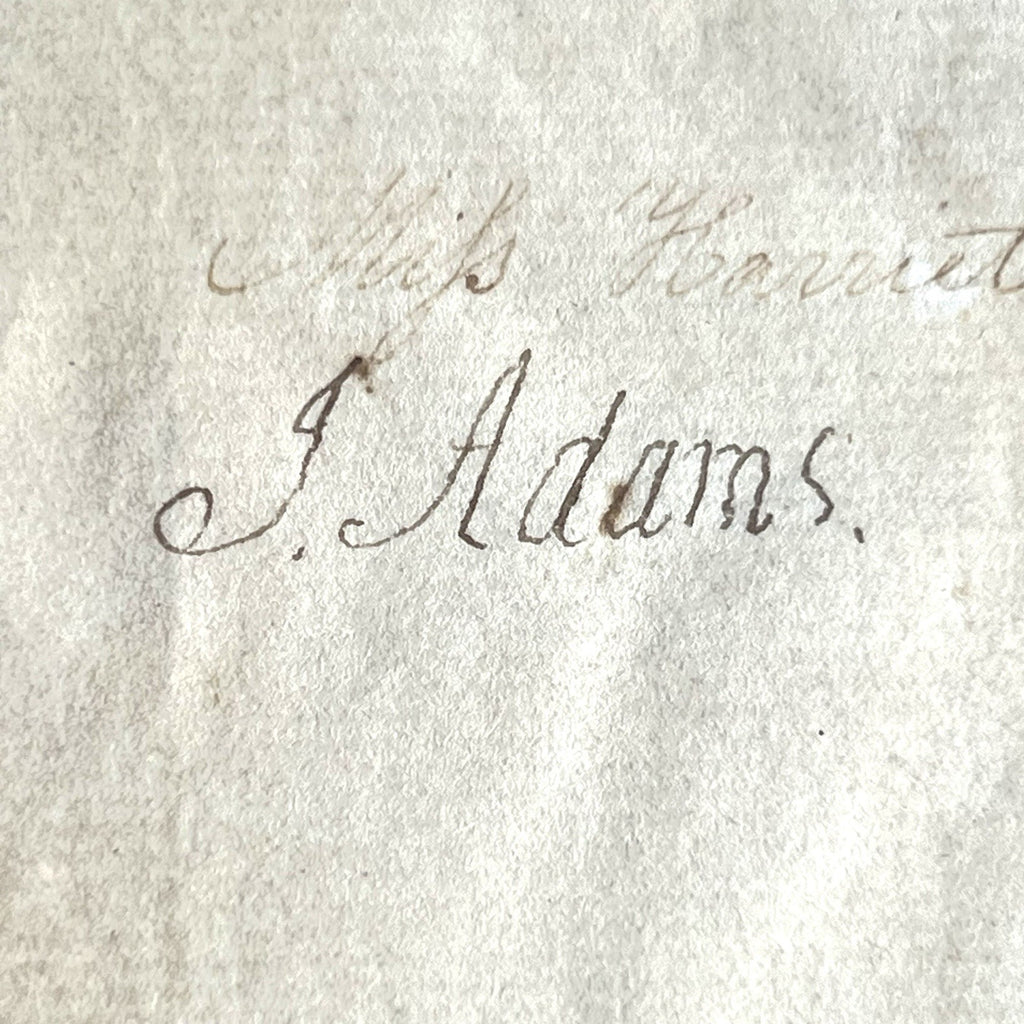 Miſs Harriet
J. Adams.